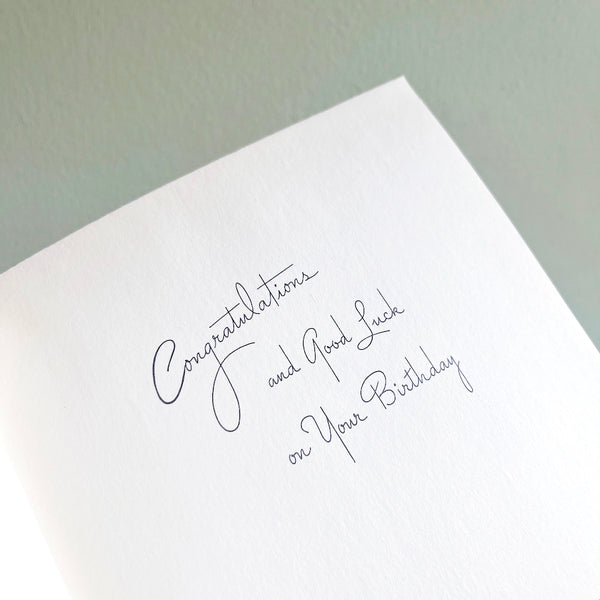 Congratulations
and Good Luck
on Your Birthday